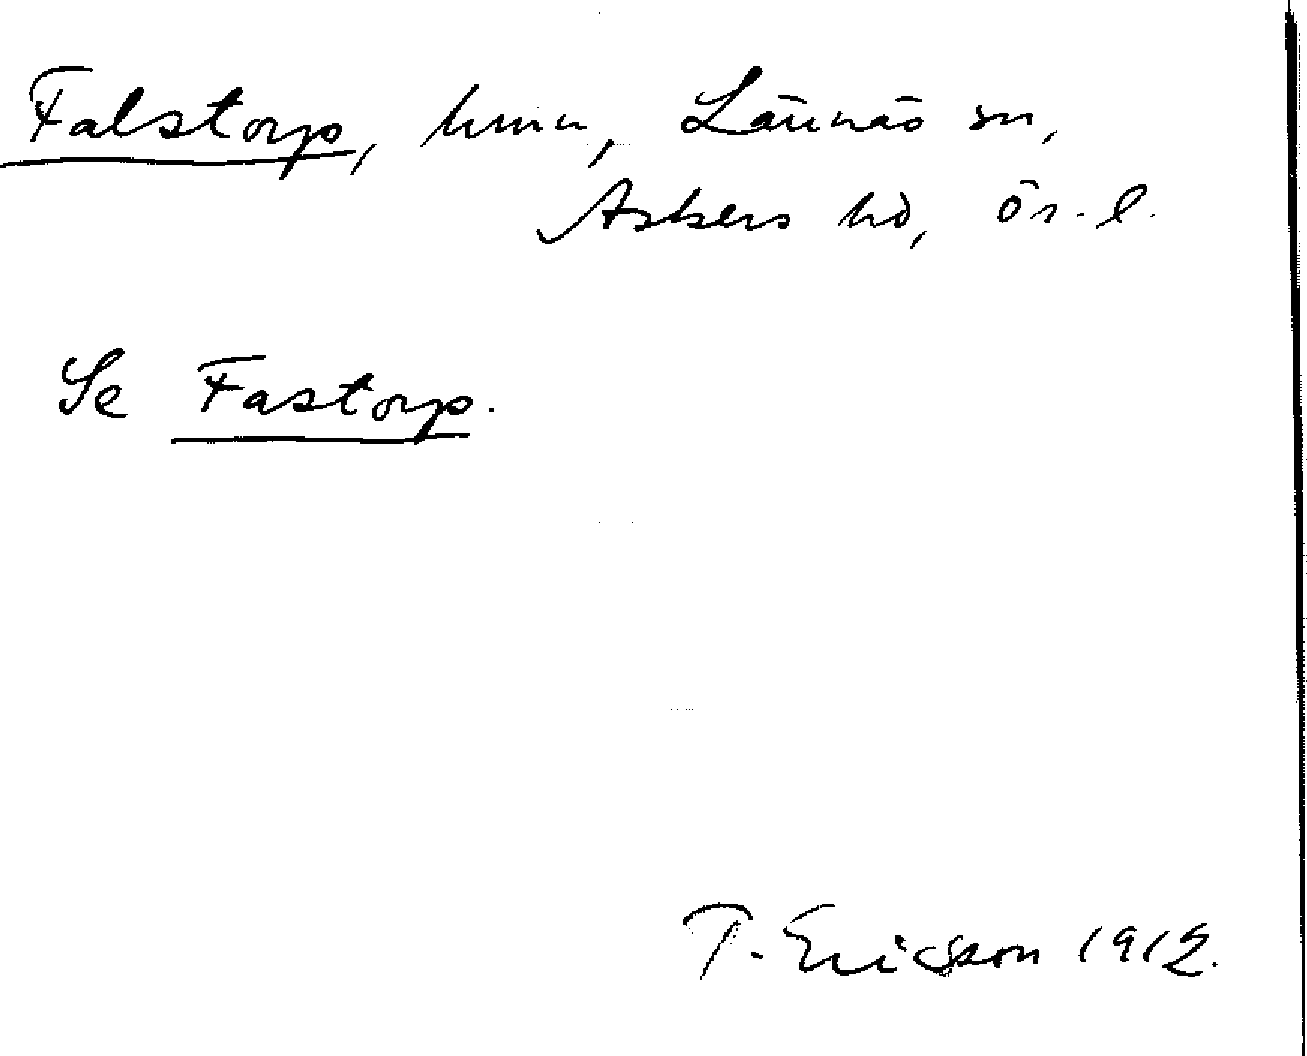 Falstorp, hmn, Lännäs sn,
Askers hd, Ör. l.
Se Fastorp.
T. Ericsson 1912.